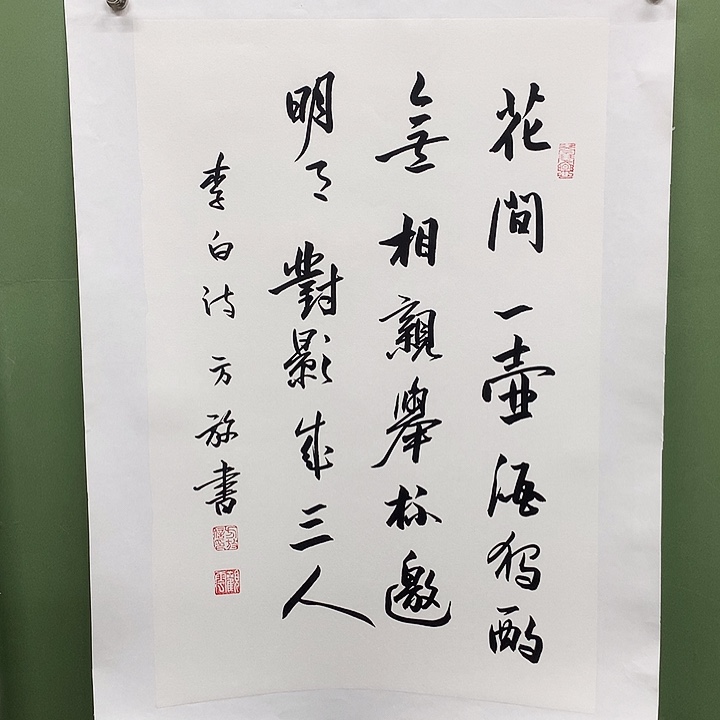 花間一壺酒独酌
無相親舉杯邀
明月對影成三人
李白诗 方 書